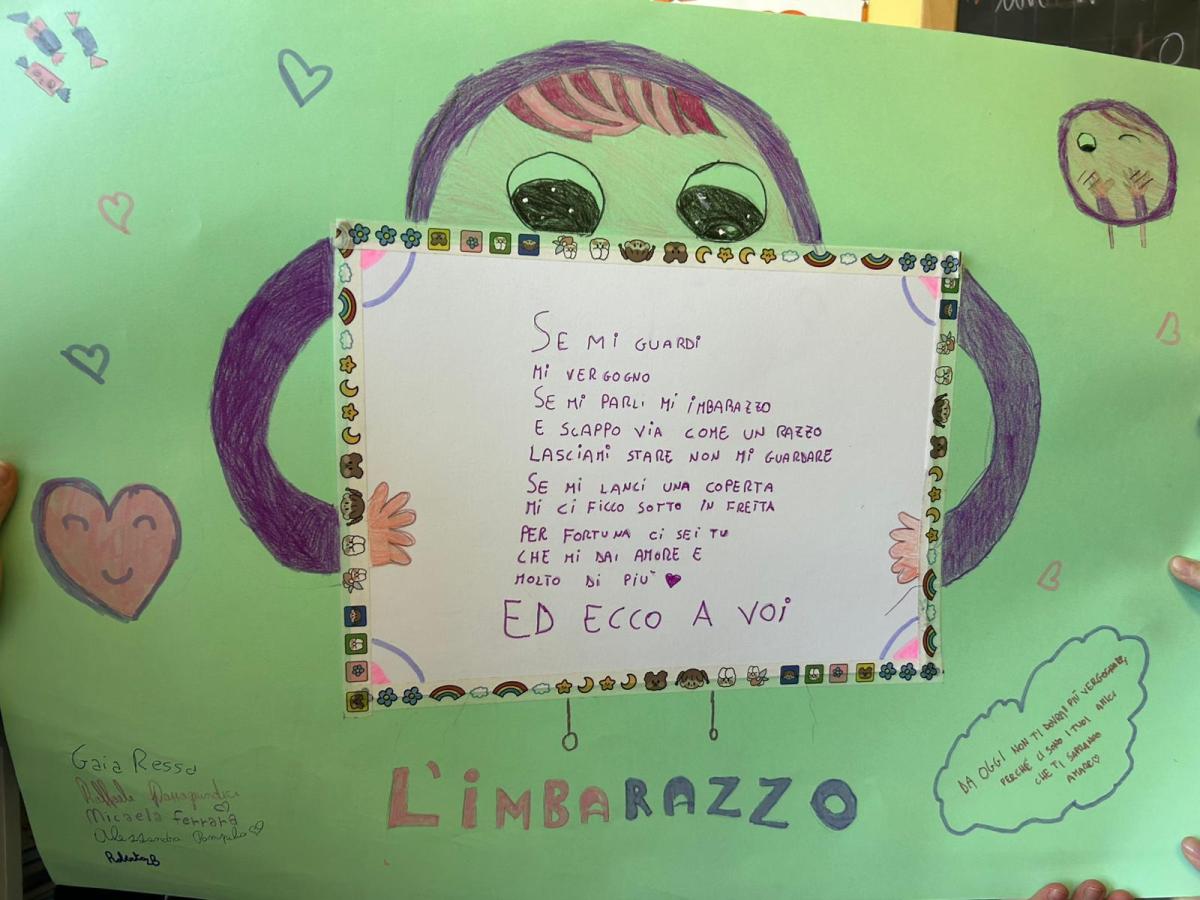 SE Mi GUARDi
Mi VERGOGNO
SE Mi PARLi Mi iMBARAZZO
E SCAPPO ViA COME UN RAZZO
LASCiAMi STARE NON Mi GUARDARE
SE Mi LANCi UNA COPERTA
Mi Ci FiCCO SOTTO iN FRETTA
PER FORTUNA Ci SEi TU
CHE Mi DAi AMORE E
MOLTO Di PiU`
ED ECCO A VOi
L'iMBARAZZO
DA OGGI NON TI DOVRAI PIÚ VERGOGNARE,
PERCHÉ CI SONO I TUOI AMICI
CHE TI SAPRANNO
AMARE
Gaia Ressa
Raffaele
Micaela Ferrara
Alessandra Pompilio